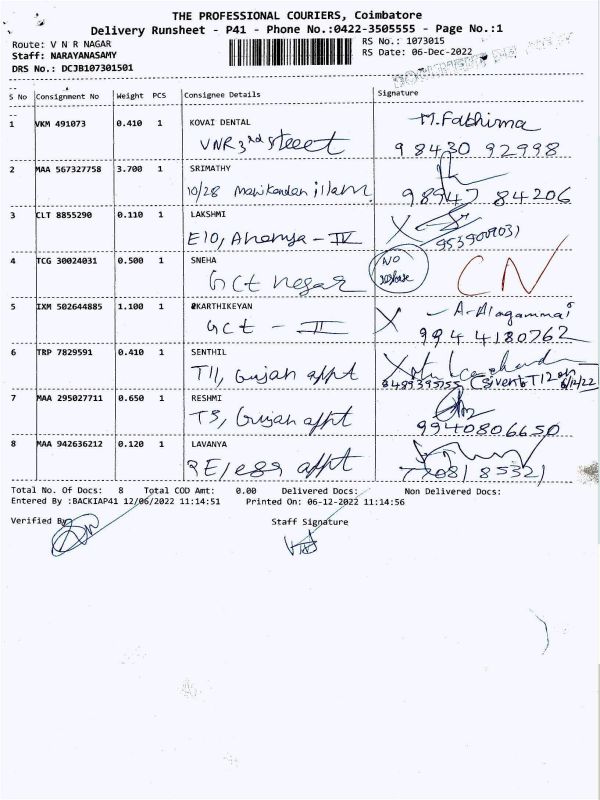 THE PROFESSIONAL COURIERS, Coimbatore
Delivery Runsheet - P41 - Phone No.:0422-3505555 - Page No.:1
Route: V N R NAGAR
RS No.: 1073015
Staff: NARAYANASAMY
RS Date: 06-Dec-2022
DRS No.: DCJB107301501
S No Consignment No Weight PCS Consignee Details Signature
1 VKM 491073 0.410 1 KOVAI DENTAL M.Fathima
VNR 3rd street 98430 92998
2 MAA 567327758 3.700 1 SRIMATHY
10/28 Manikandan illam 98947 84206
3 CLT 8855290 0.110 1 LAKSHMI X
E10, Ananya - IV
4 TCG 30024031 0.500 1 SNEHA No CN
Gct nagar
5 IXM 502644885 1.100 1 KARTHIKEYAN X A-Alagammai
Gct - II 994 4180762
6 TRP 7829591 0.410 1 SENTHIL
T11, Gujan appt
7 MAA 295027711 0.650 1 RESHMI
T3, Gujan appt 9940806650
8 MAA 942636212 0.120 1 LAVANYA
appt
Total No. Of Docs: 8 Total COD Amt: 0.00 Delivered Docs: Non Delivered Docs:
Entered By :BACKIAP41 12/06/2022 11:14:51 Printed On: 06-12-2022 11:14:56
Verified By Staff Signature